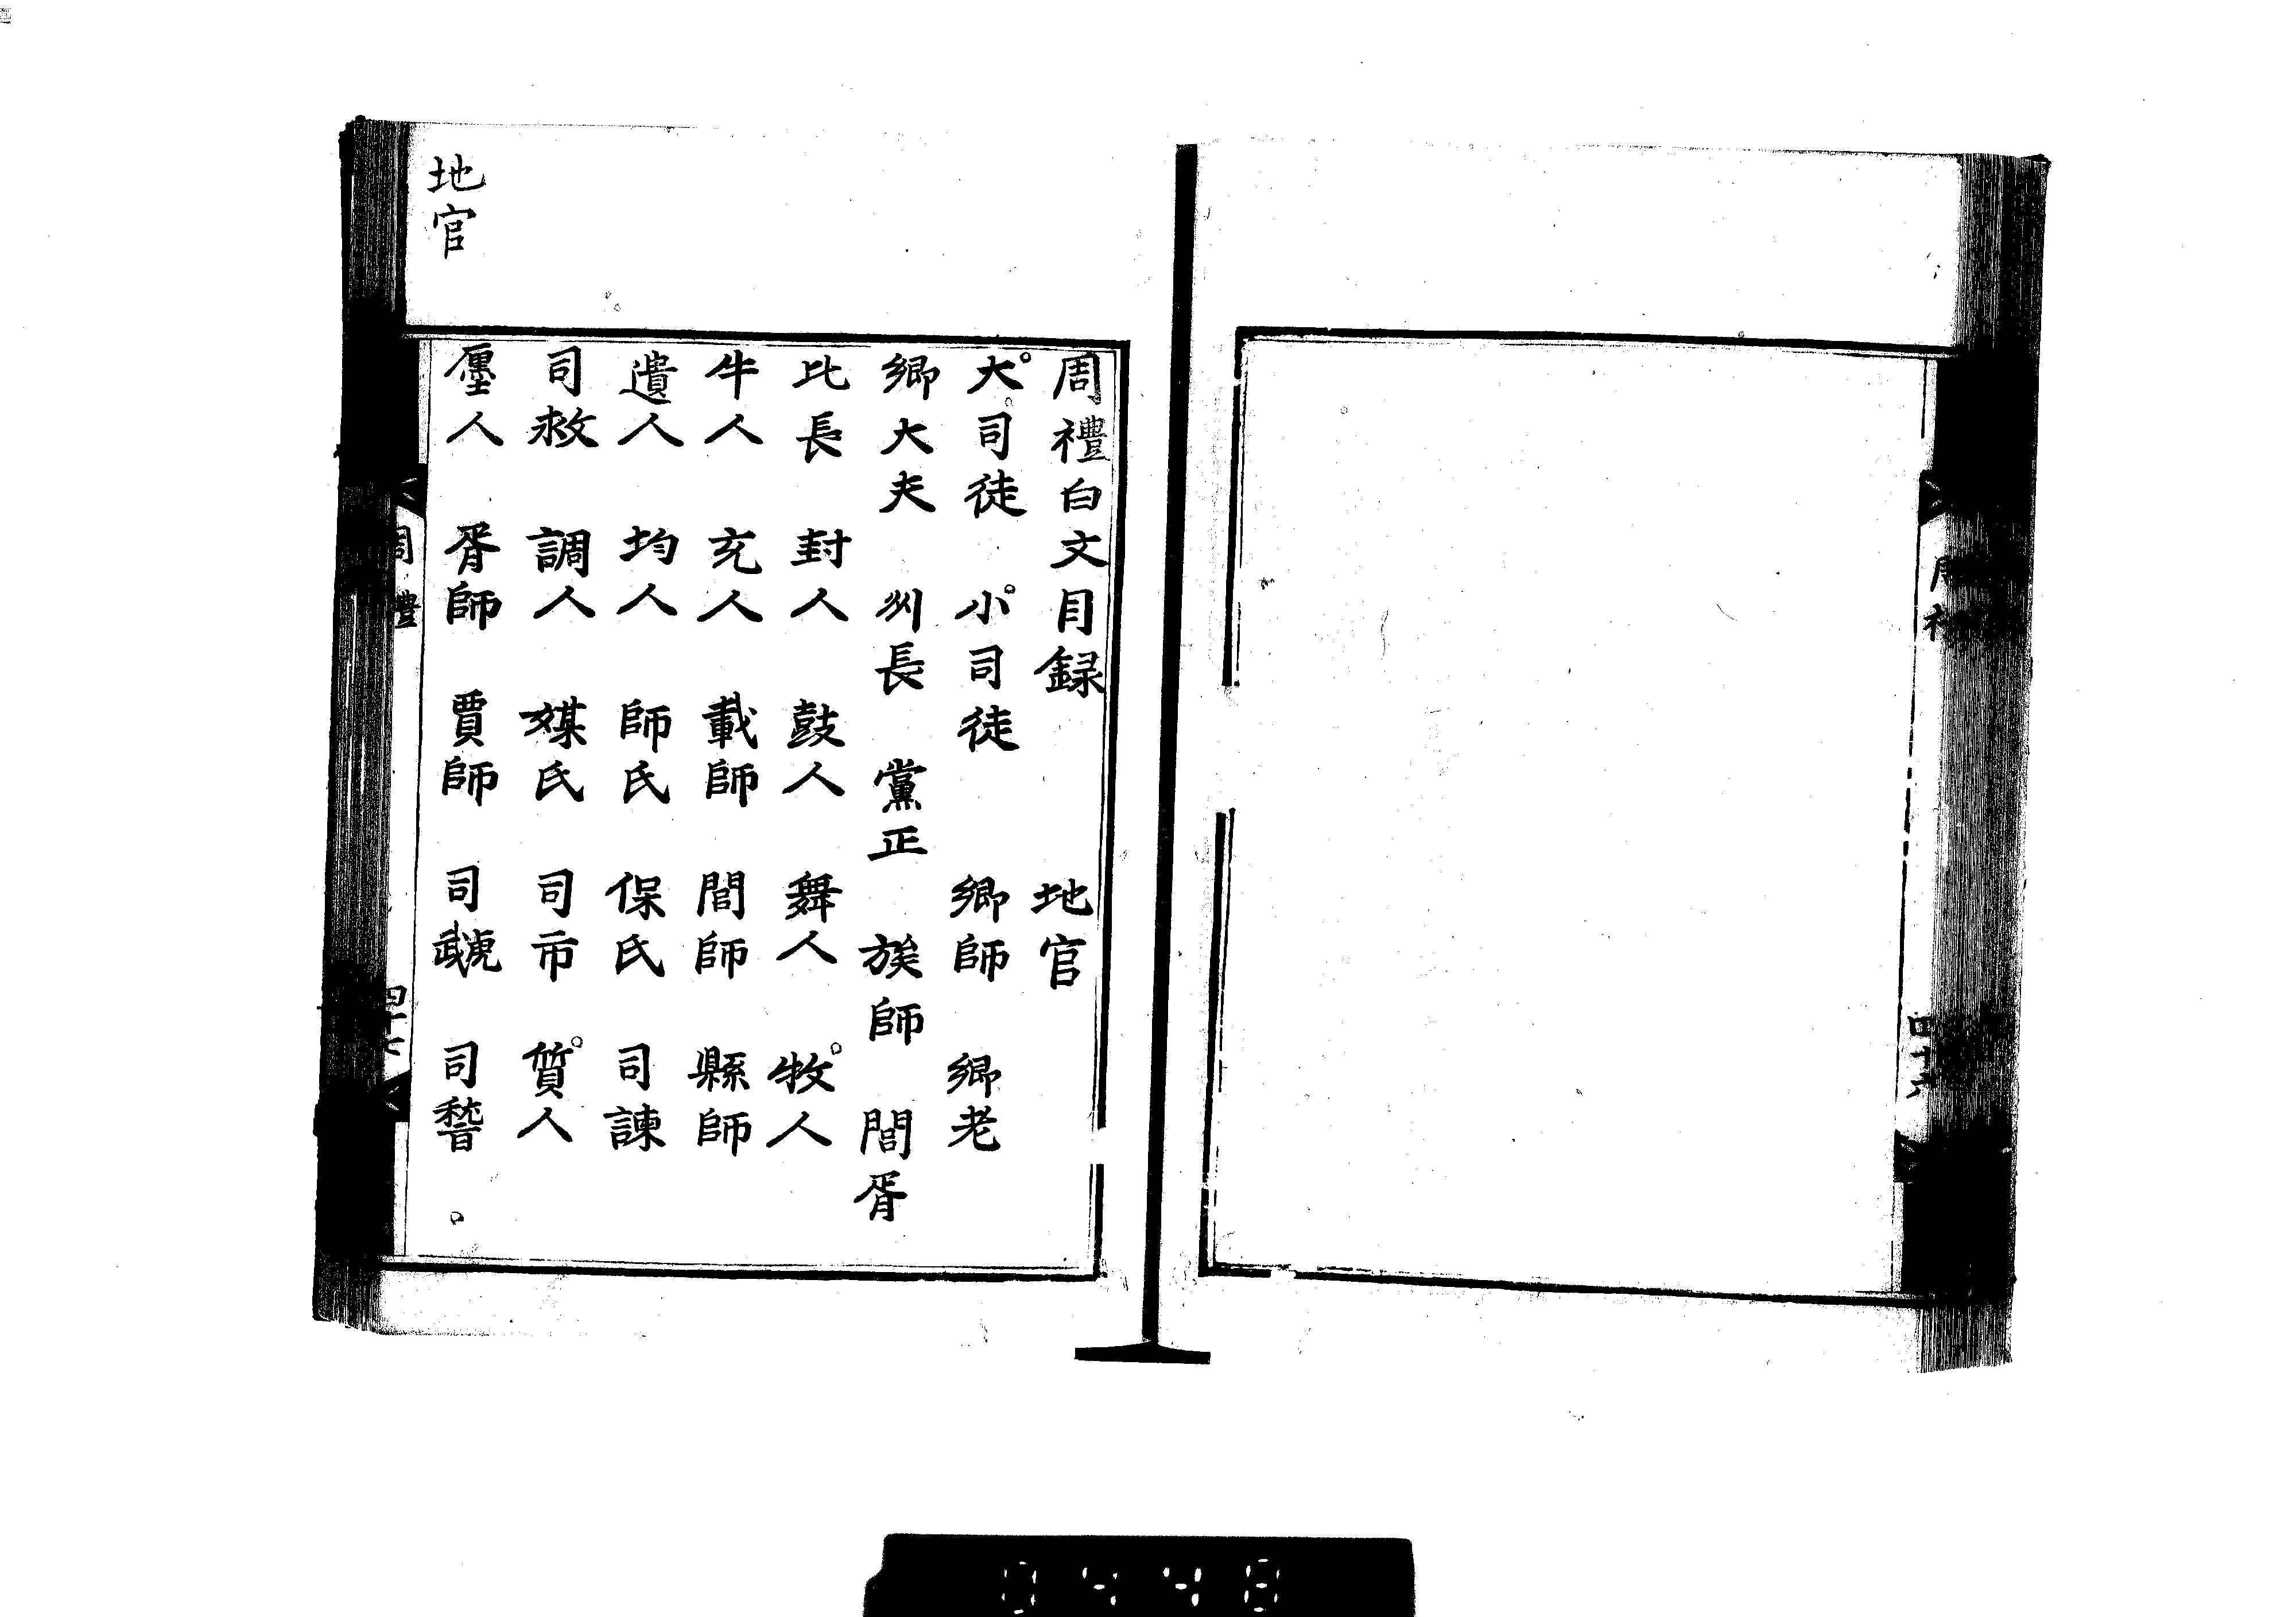 周禮
四十六
周禮白文目録　地官
大司徒　小司徒　鄉師　鄉老
鄉大夫　州長　黨正　族師　閭胥
比長　封人　鼓人　舞人　牧人
牛人　充人　載師　閭師　縣師
遺人　均人　師氏　保氏　司諫
司救　調人　媒氏　司市　質人
廛人　胥師　賈師　司虣　司稽
地官
周禮
四十七
0448